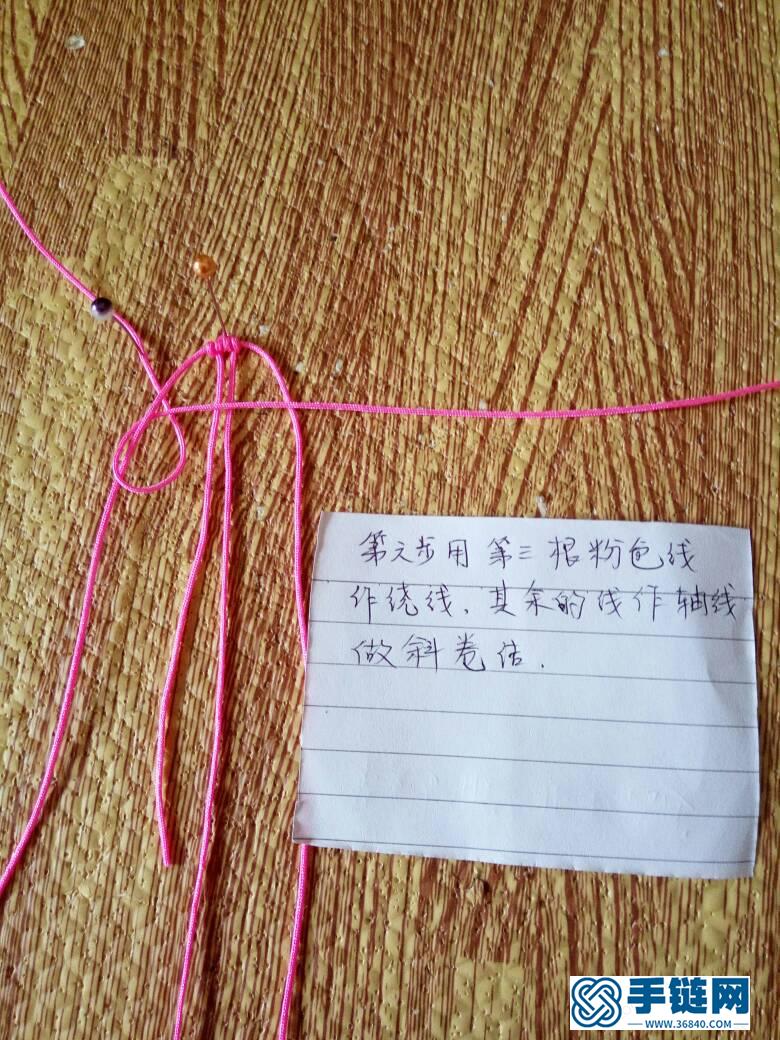 第六步用第三根粉色线
作绕线、其余的线作轴线
做斜卷结.
手链网
www.36840.com